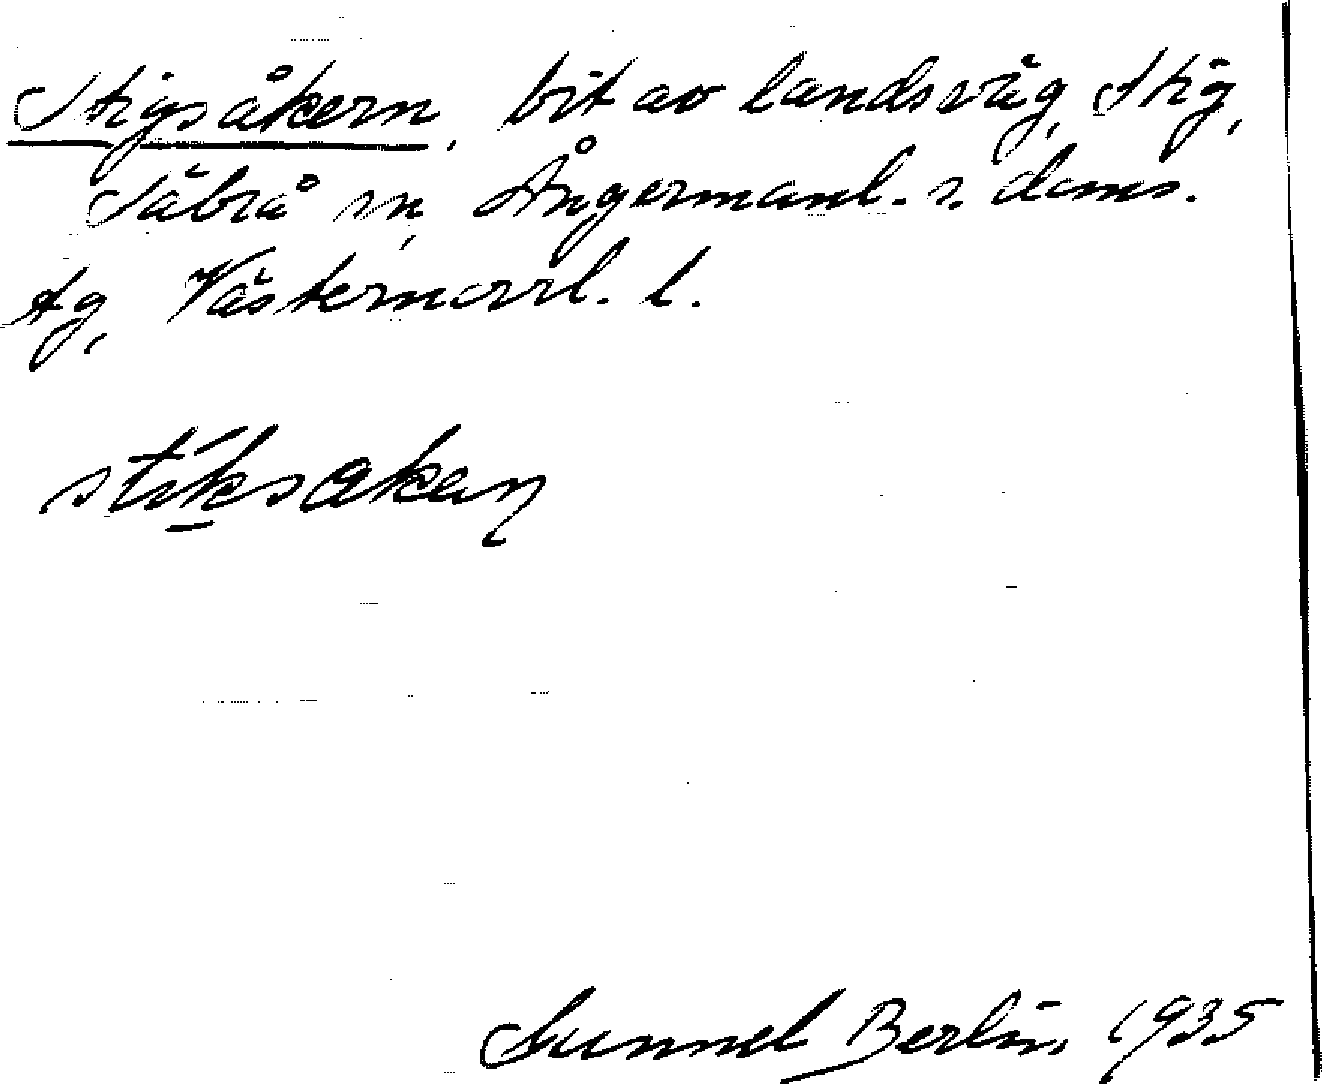 Stigsåkern, bit av landsväg, Stig,
Säbrå sn, Ångermanl. s. doms.
tg, Västernorrl. l.
stiksakan
Gunnel Berlin, 1935